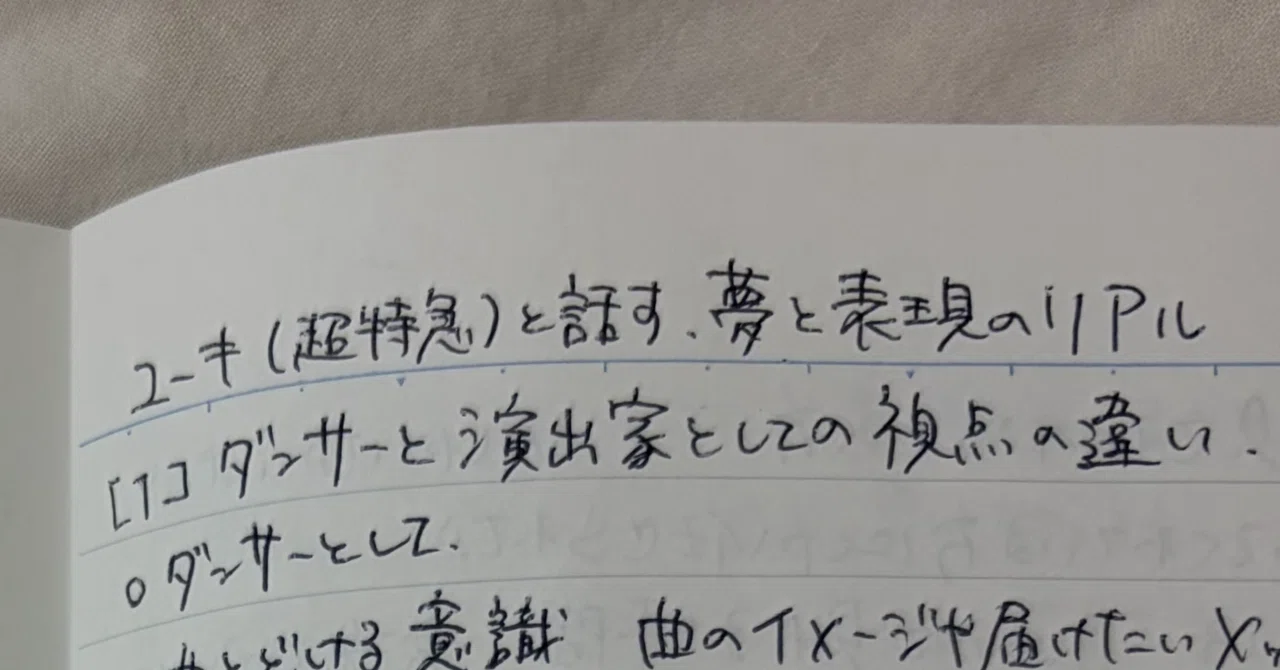 ユーキ(超特急)と話す、夢と表現のリアル
[1] ダンサーと演出家としての視点の違い.
○ダンサーとして.
とどける意識 曲のイメージや届けたいメ